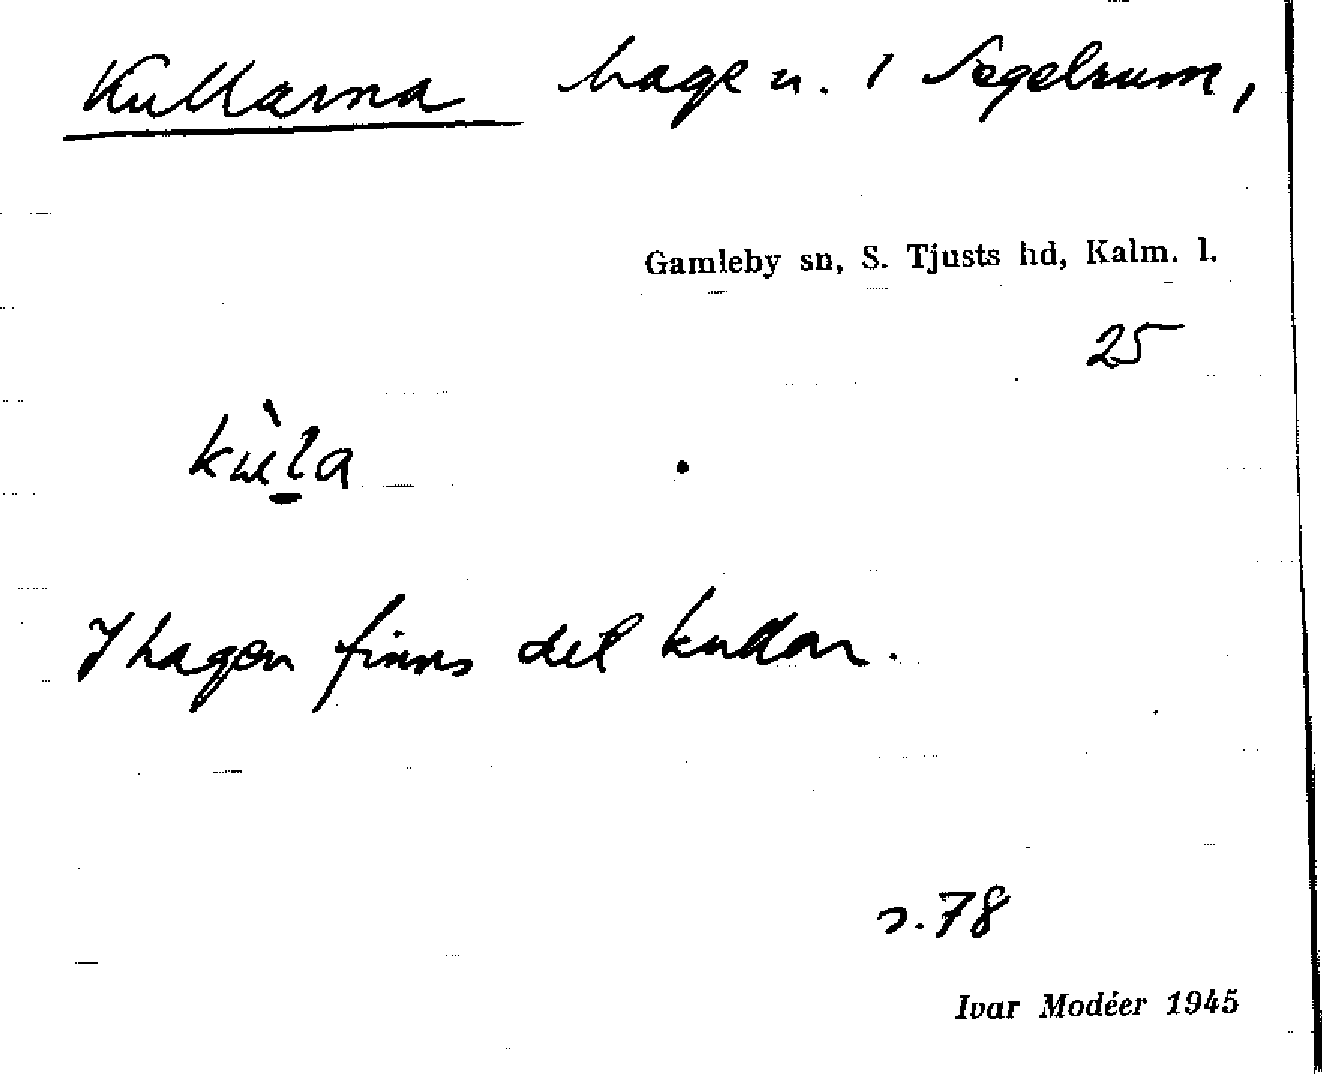 Kullarna hage n. 1 Segelrum,
Gamleby sn, S. Tjusts hd, Kalm. l.
25
kùla
I hagen finns del kullar.
s. 78
Ivar Modéer 1945